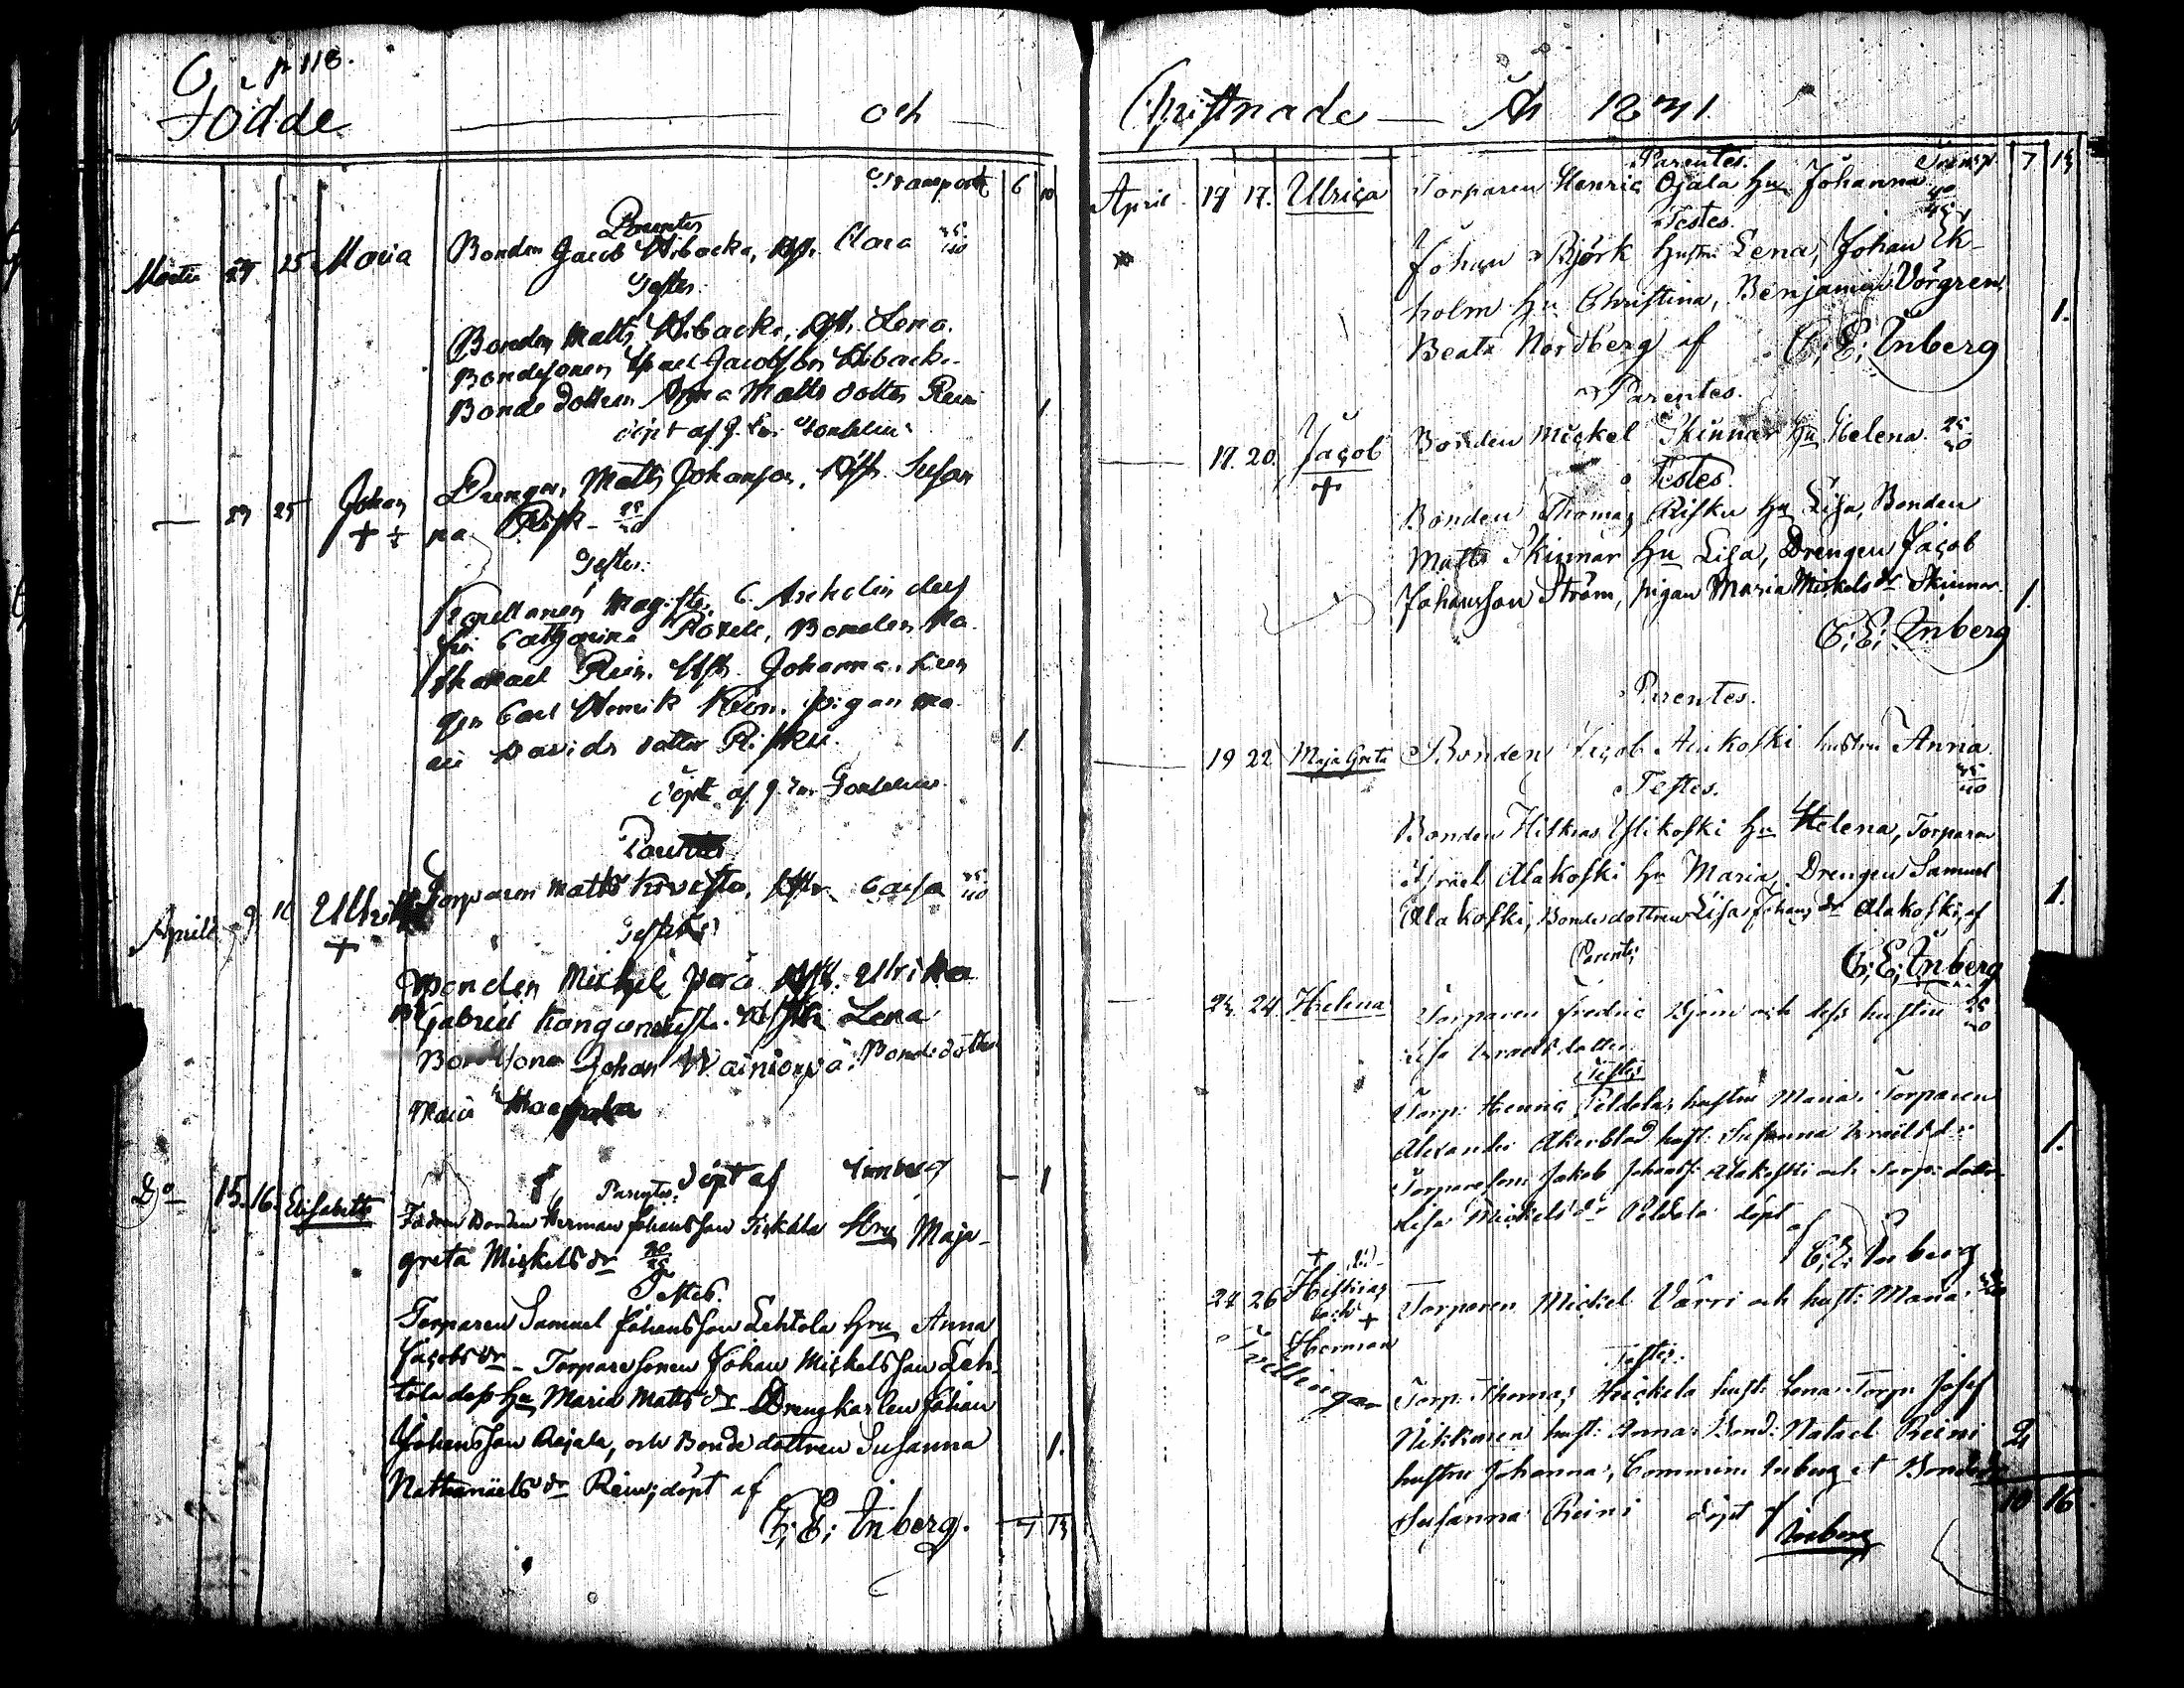 p 118.
Födde och
Transport 6 10
Parentes
Martii 24 25 Maria Bonden Jacob Wibacka, Hst. Clara 35/40
Testes.
Bonden Matts Wibacka, Hst. Lena.
Bondesonen Israel Jacobsson Wibacka
Bonde dottren Anna Matts dotter Rein 1
döpt af
— 23 25 Johan Drengen Matts Johansson, Hst. Susan
na Risk 25/30
Testes.
Capellanen Magister C. Archolin dess
fru Catharina Bonden Na
thanael Rein. Hst. Johanna. Dren
gen Carl Henrik pigan Ma
ria Davids dotter Risku. 1
döpt af
Parentes
Aprill 9 10 Ulrika Torparen Matts Kovesto, Hstr. Caisa 35/40
Testes
Bonden Michel Perä Hst. Ulrika
Gabriel Kangoniusta. Hst. Lena
Bondesone Johan Wainionpä. Bondedotter
Maria
döpt af Innberg — 1
Parentes.
Do 15. 16. Elisabetta Fadren Bonden Herman Johansson Tiskala Hru Maja
greta Mickels dr 20/25
Testes.
Torparen Samuel Johansson Lehtola Hru Anna
Jacobs dr - Torpare sonen Johan Mickelsson Leh
tola dess Hu Maria Matts dr Drengkarlen Johan
Johansson Rajala, och Bonde dottren Susanna 1.
Nathanaels dr Rein; döpt af
C; E; Inberg. 7 13
Christnade — År 1831.
Parentes. Transp. 7 13
April 14 17. Ulrica Torparen Henric Ojala Hu Johanna 40/45
Testes.
Johan Björk hustru Lena, Johan Ek-
holm Hu Christina, Benjamin Vörgren,
Beata Nordberg af C; E; Inberg 1.
Parentes.
— 17. 20. Jacob Bonden Mickel Skinnar Hu Helena 25/30
Testes.
Bonden Thomas Risku Hu Lisa, Bonden
Matts Skinnar Hu Lisa, Drengen Jacob
Johansson Ström, pigan Maria Mickels dr Skinnar 1.
C; E; Inberg
Parentes.
— 19 22 Maja Greta Bonden Jacob Alakoski hustru Anna
Testes. 35/40
Bonden Hiskias Ylikoski Hu Helena, Torparen
Israel Alakoski Hu Maria Drengen Samuel
Alakoski, Bondedottren Lisa Johans dr Alakoski, af 1.
Parentes C; E; Inberg
— 23. 24 Helena Torparen Fredric Björn och dess hustru 25/30
Lisa Israelsdotter
Testes
Torp: Henric Peldola, hustru Maria: Torparen
Alexander Åkerblad hust: Susanna Israels d: 1.
Torpareson Jakob Johanss: Alakoski och Torp: dotter
Lisa Mickels dr Peldola döpt
af C; E; Inberg
24 26 Hiskias
och
Herman
Tvillingar
Torparen Mickel Värri och hust: Maria
Testes:
Torp: Thomas hust: Lena. Torp: Josef
Nikkonen hust: Anna: Bond: Natael Reini 2
hustru Johanna, Commin: Inberg et Bonded:
Susanna Reini döpt af 10 16
Inberg